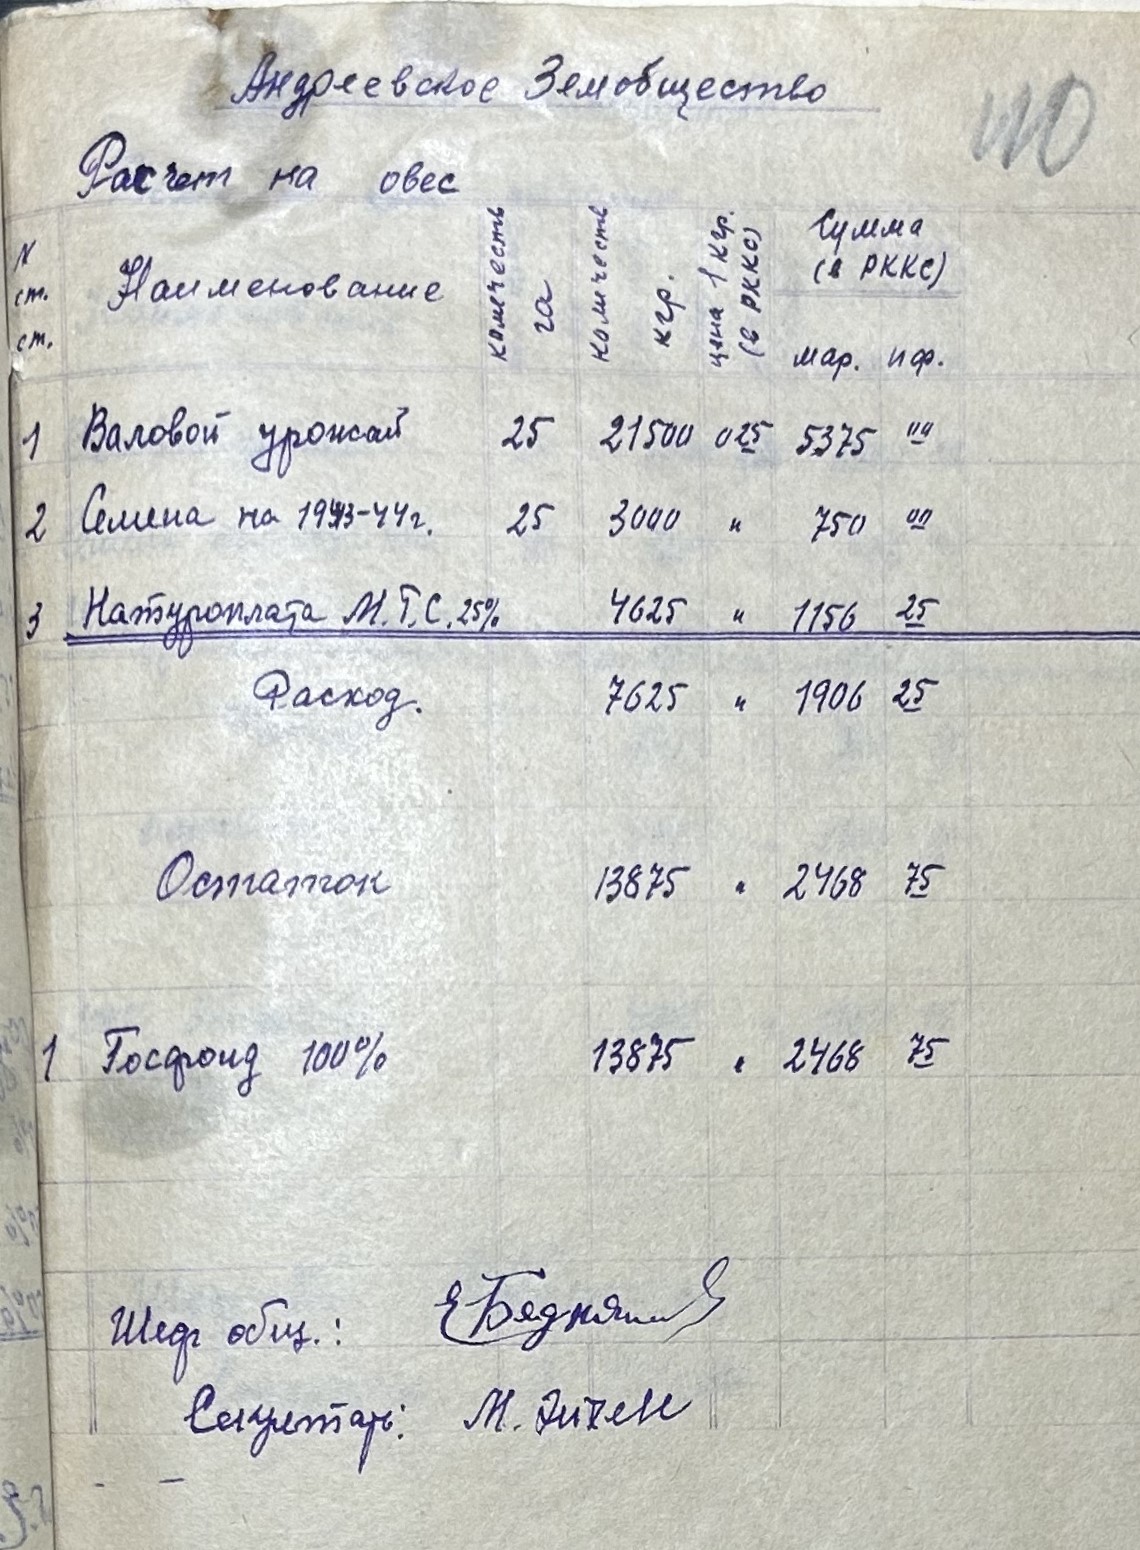 АндреевскоеЗемобщество
110
Расчет на овес
N ст. ст. Наименование количеств га количеств кгр. цена 1 кгр. (в РККС) Сумма (в РККС)
мар. пф.
1 Валовой урожай 25 21500 0 25 5375 00
2 Семена на 1943-44 г. 25 3000 " 750 00
3 Натуроплата М.Т.С. 25% 4625 " 1156 25
Расход. 7625 " 1906 25
Остаток 13875 " 2468 75
1 Госфонд 100% 13875 " 2468 75
Шеф общ.:
Секретарь: М.